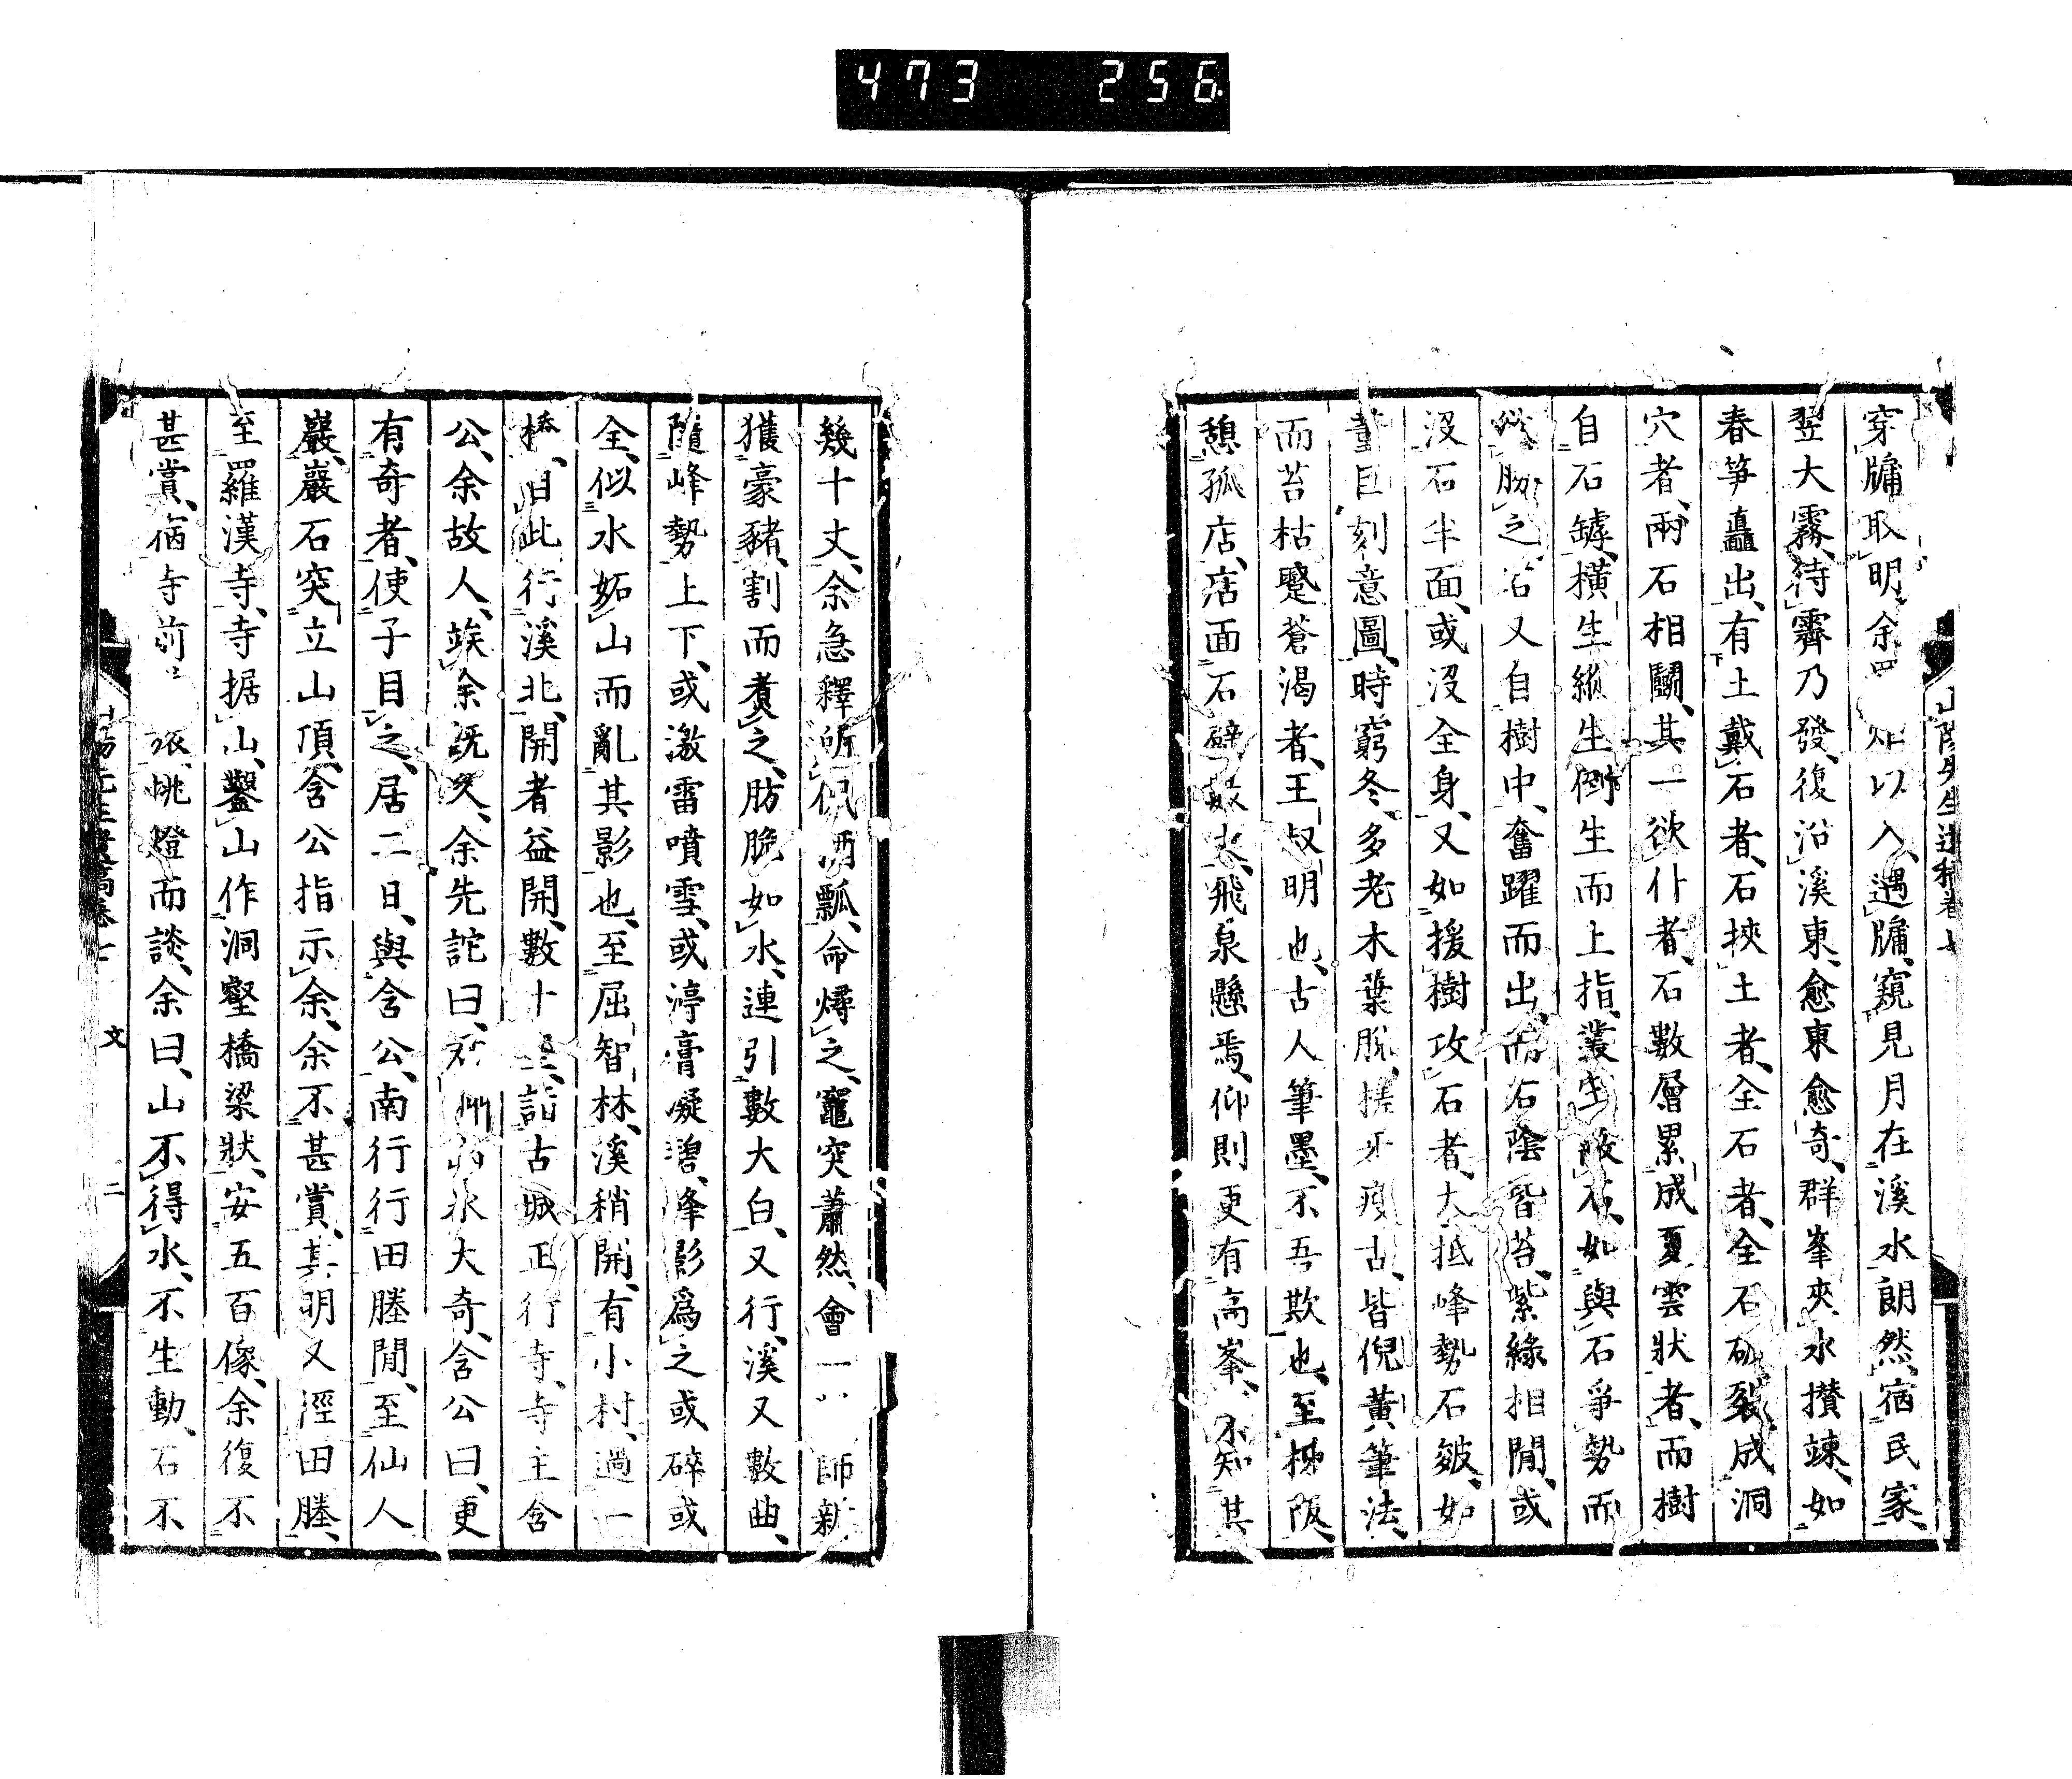 473 256
穿牖取明余以入遇牖窺見月在溪水朗然宿民家
翌大霧待霽乃發復沿溪東愈東愈奇群峯夾水攅竦如
春笋矗出有土戴石者石挾土者全石者全石砿裂成洞
穴者兩石相鬭其一欲仆者石數層累成夏雲狀者而樹
自石罅橫生縱生倒生而上指叢生蔽石如與石爭勢而
之石又自樹中奮躍而出而石陰皆苔紫綠相閒或
沒石半面或沒全身又如援樹攻石者大抵峰勢石皴如
董巨刻意圖時窮冬多老木葉脫槎牙瘦古皆倪黃筆法
而苔枯蹙蒼渴者王叔明也古人筆墨不吾欺也至柹阪
憩孤店店面石壁飛泉懸焉仰則更有高峯不知其
山陽先生遺稿卷七
幾十丈余急釋所佩酒瓢命燖之竈突蕭然會一師新
獲豪豬割而煮之肪脆如水連引數大白又行溪又數曲
隨峰勢上下或激雷噴雪或渟膏凝碧峰影爲之或碎或
全似水妬山而亂其影也至屈智林溪稍開有小村過一
橋自此行溪北開者益開數十里詣古城正行寺寺主含
公余故人竢余既久余先詑曰水大奇含公曰更
有奇者使子目之居二日與含公南行行田塍閒至仙人
巖巖石突立山頂含公指示余余不甚賞其明又涇田塍
至羅漢寺寺据山鑿山作洞壑橋梁狀安五百像余復不
甚賞宿寺前挑燈而談余曰山不得水不生動石不
山陽先生遺稿卷七 文 二